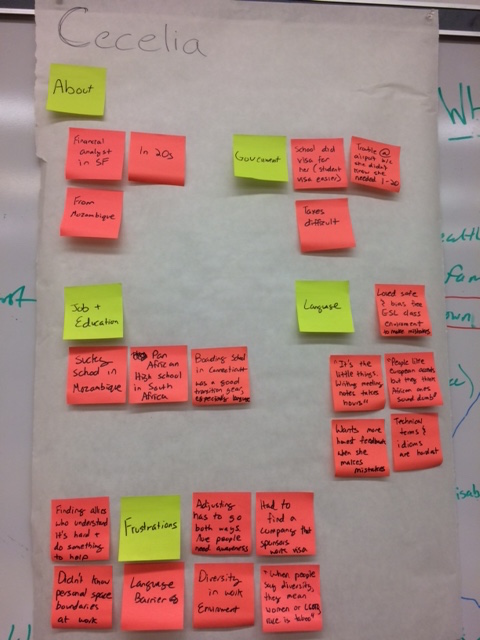 Cecelia
About
Financial
analyst
in SF
In 20s
From
Mozambique
Government
School did
visa for
her (student
visa easier)
Trouble @
airport b/c
she didn't
know she
needed I-20
Taxes
difficult
Job +
Education
School in
Mozambique
Pan
African
High school
in South
Africa
Boarding School
in Connecticut
was a good
transition year,
especially language
Language
Loved safe
& bias free
ESL class
to make mistakes
"It's the
little things.
Writing meeting
notes takes
hours"
"People like
European accents
but they think
African ones
sound dumb"
Wants more
honest feedback
when she
makes
mistakes
Technical
terms &
idioms
are hardest
Finding allies
who understand
it's hard +
do something
to help
Frustrations
Adjusting
has to go
both ways,
people
need awareness
Had to
find a
company that
sponsors
work visa
Didn't know
personal space
boundaries
at work
Language
Barriers
Diversity
in work
Enviroment
"When people
say diversity,
they mean
women or LGBTQ
race is taboo"
Wh